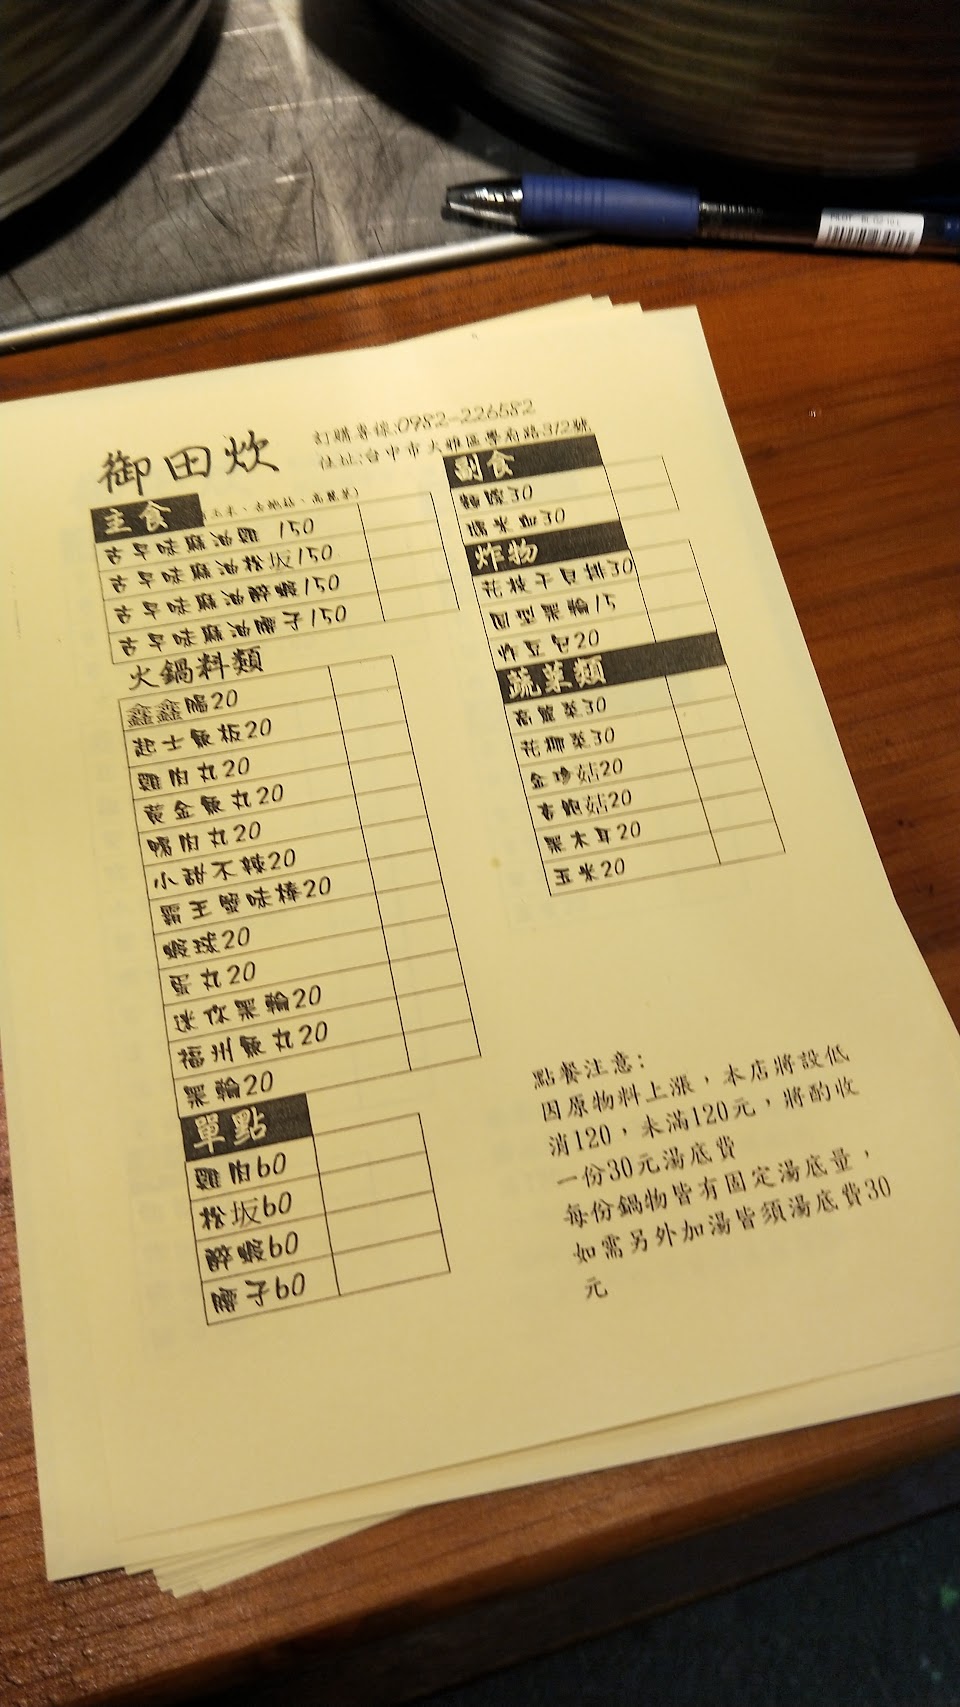 御田炊
訂購專線:0982-226582
住址:台中市大雅區學府路312號
主食
(玉米、杏鮑菇、高麗菜)
古早味麻油雞 150
古早味麻油松坂150
古早味麻油醉蝦150
古早味麻油腰子150
火鍋料類
鑫鑫腸20
起士魚板20
雞肉丸20
黃金魚丸20
鴨肉丸20
小甜不辣20
霸王蟹味棒20
蝦球20
蛋丸20
迷你黑輪20
福州魚丸20
黑輪20
單點
雞肉60
松坂60
醉蝦60
腰子60
副食
麵線30
豬米血30
炸物
花枝干貝排30
圓型黑輪15
炸豆包20
蔬菜類
高麗菜30
花椰菜30
金珍菇20
杏鮑菇20
黑木耳20
玉米20
點餐注意:
因原物料上漲，本店將設低
消120，未滿120元，將酌收
一份30元湯底費
每份鍋物皆有固定湯底量，
如需另外加湯皆須湯底費30
元
PILOT